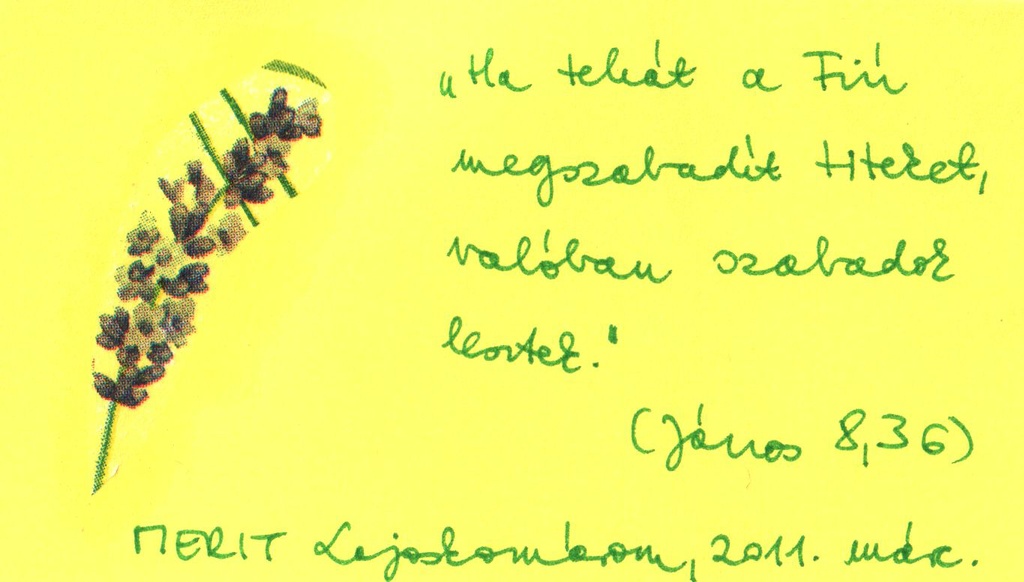 „Ha tehát a Fiú
megszabadít titeket,
valóban szabadok
lesztek."
(János 8,36)
MERIT Lajoskomárom, 2011. márc.